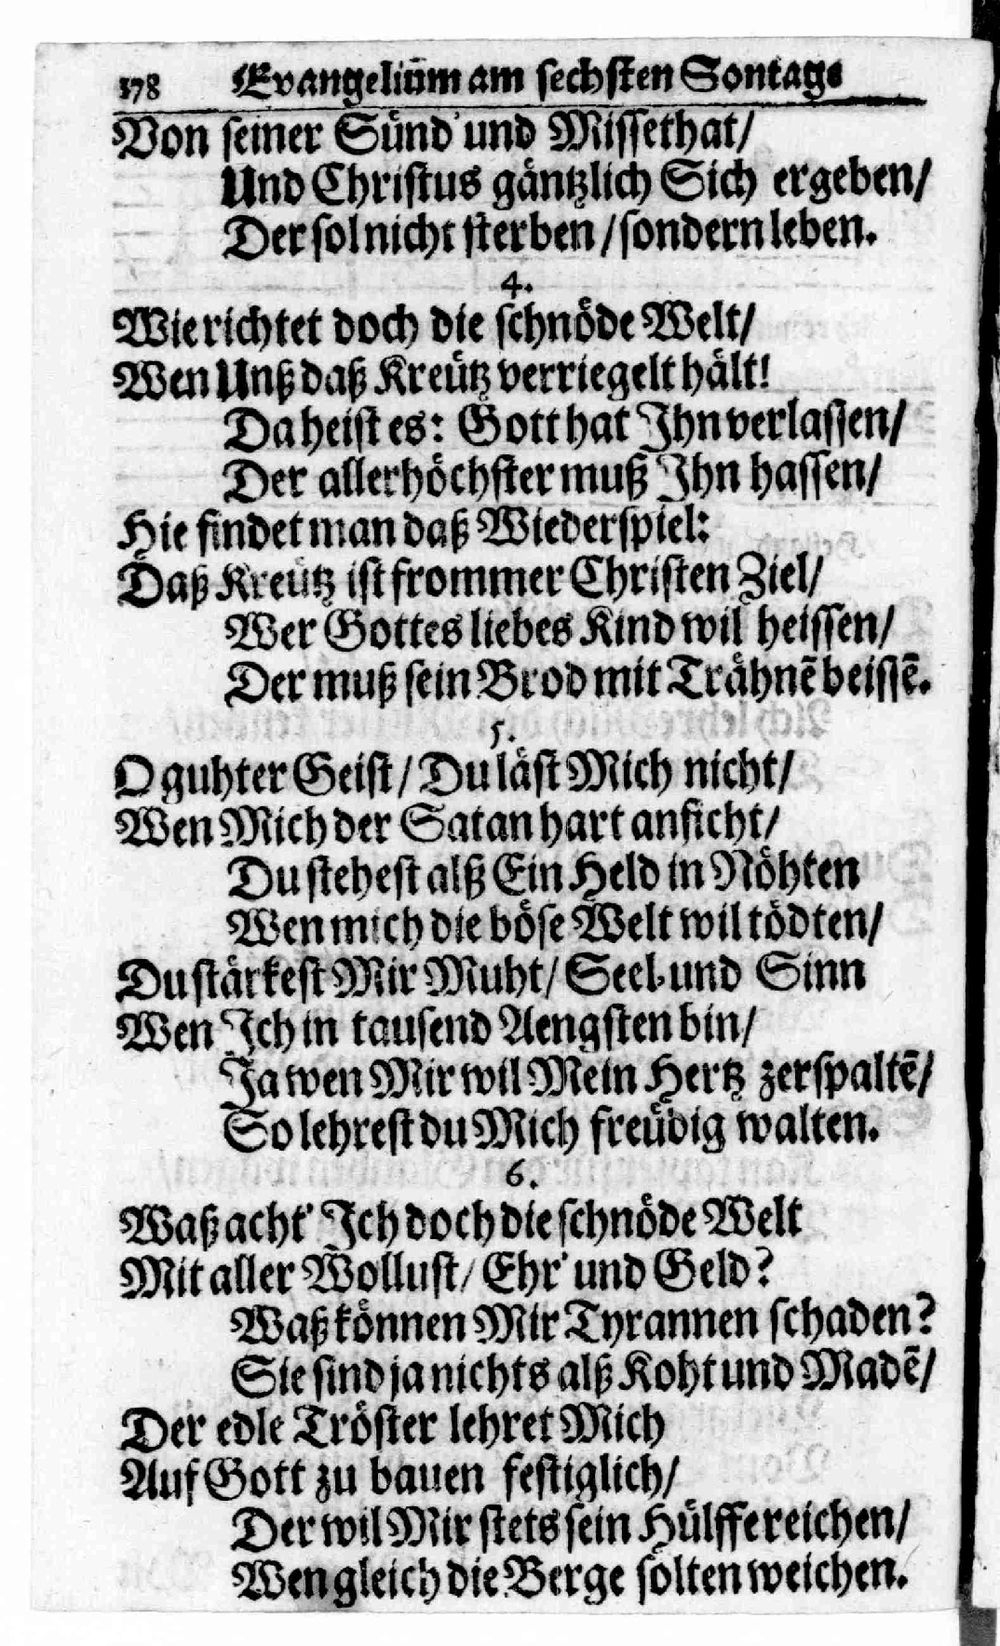 178 Evangelium am sechsten Sontage
Von seiner Sünd' und Missethat/
Und Christus gäntzlich Sich ergeben/
Der sol nicht sterben/sondern leben.
4.
Wie richtet doch die schnöde Welt/
Wen Unß daß Kreütz verriegelt hält!
Da heist es: Gott hat Ihn verlassen/
Der allerhöchster muß Ihn hassen/
Hie findet man daß Wiederspiel:
Daß Kreütz ist frommer Christen Ziel/
Wer Gottes liebes Kind wil heissen/
Der muß sein Brod mit Trähnē beissē.
5.
O guhter Geist/Du läst Mich nicht/
Wen Mich der Satan hart anficht/
Du stehest alß Ein Held in Nöhten
Wen mich die böse Welt wil tödten/
Du stärkest Mir Muht/Seel und Sinn
Wen Ich in tausend Aengsten bin/
Ja wen Mir wil Mein Hertz zerspaltē/
So lehrest du Mich freüdig walten.
6.
Waß acht' Ich doch die schnöde Welt
Mit aller Wollust/Ehr' und Geld?
Waß können Mir Tyrannen schaden?
Sie sind ja nichts alß Koht und Madē/
Der edle Tröster lehret Mich
Auf Gott zu bauen festiglich/
Der wil Mir stets sein Hülffe reichen/
Wen gleich die Berge solten weichen.